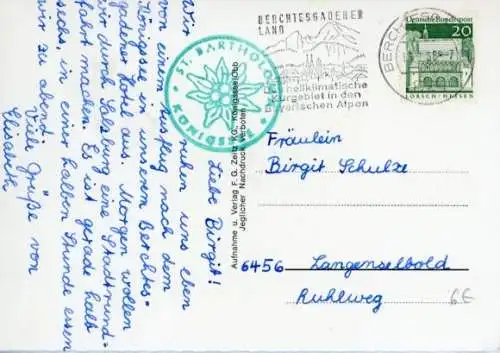 Liebe Birgit!
Wir ruhn uns eben
von einem Ausflug nach dem
Königssee in unserem Berchtes-
gadener Hotel aus. Morgen wollen
wir durch Salzburg eine Stadtrund-
fahrt machen. Es ist gerade halb
sechs, in einer halben Stunde essen
wir zu abend.
Viele Grüße von
Elisabeth
ST. BARTHOLOMÄ
KÖNIGSSEE
Aufnahme u. Verlag F. G. Zeitz KG., Königssee/Obb.
Jeglicher Nachdruck verboten
BERCHTESGADENER
LAND
Das heilklimatische
Kurgebiet in den
Bayerischen Alpen
Deutsche Bundespost
20
LORSCH · HESSEN
Fräulein
Birgit Schulze
6456 Langenselbold
Ruhlweg
6€